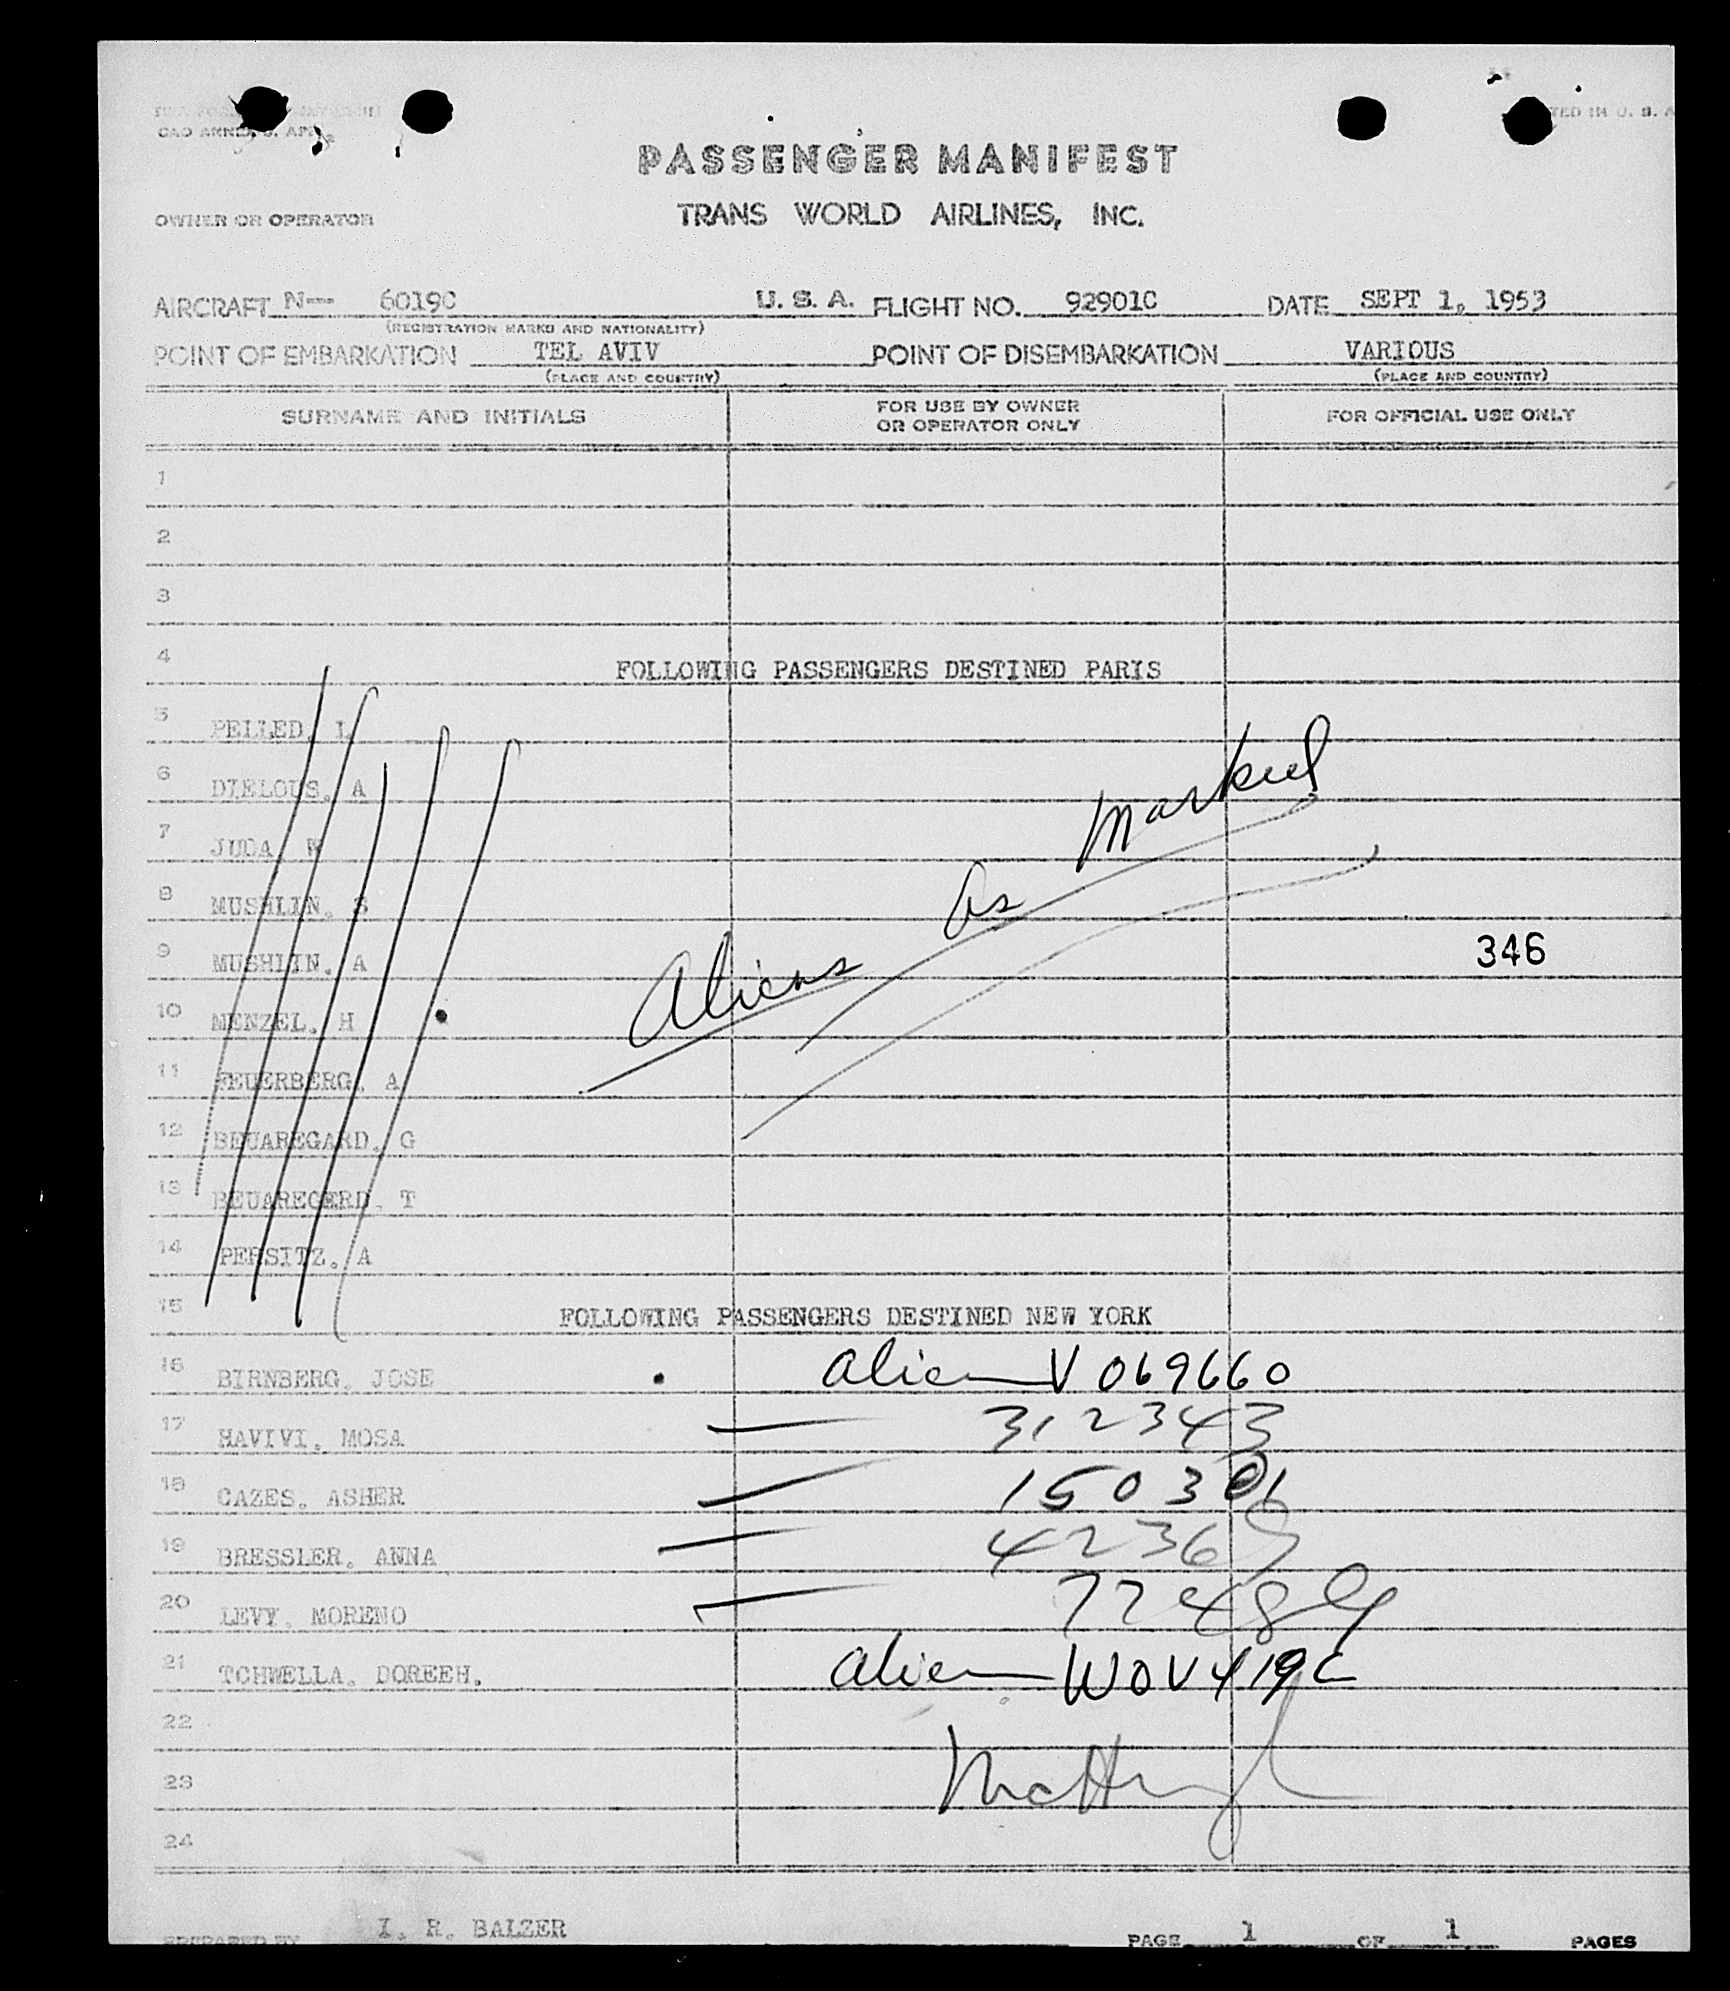 CAO ANNEX
PRINTED IN U. S. A
PASSENGER MANIFEST
OWNER OR OPERATOR
TRANS WORLD AIRLINES, INC.
AIRCRAFT N-- 6019C U. S. A. FLIGHT NO. 92901C DATE SEPT 1, 1953
(REGISTRATION MARKS AND NATIONALITY)
POINT OF EMBARKATION TEL AVIV POINT OF DISEMBARKATION VARIOUS
(PLACE AND COUNTRY) (PLACE AND COUNTRY)
SURNAME AND INITIALS FOR USE BY OWNER OR OPERATOR ONLY FOR OFFICIAL USE ONLY
1
2
3
4 FOLLOWING PASSENGERS DESTINED PARIS
5 PELLED, L
6 DJELOUS, A
7 JUDA, W
8 MUSHLIN, S
9 MUSHLIN, A
346
10 MENZEL, H
Aliens as marked
11 FEUERBERG, A
12 BEUAREGARD, G
13 BEUAREGERD, T
14 PERSITZ, A
15 FOLLOWING PASSENGERS DESTINED NEW YORK
16 BIRNBERG, JOSE alien V 069660
17 HAVIVI, MOSA — 312343
18 CAZES, ASHER — 150301
19 BRESSLER, ANNA — 42369
20 LEVY, MORENO — 72489
21 TCHWELLA, DOREEH. alien
22
23
24
PREPARED BY I. R. BALZER PAGE 1 OF 1 PAGES